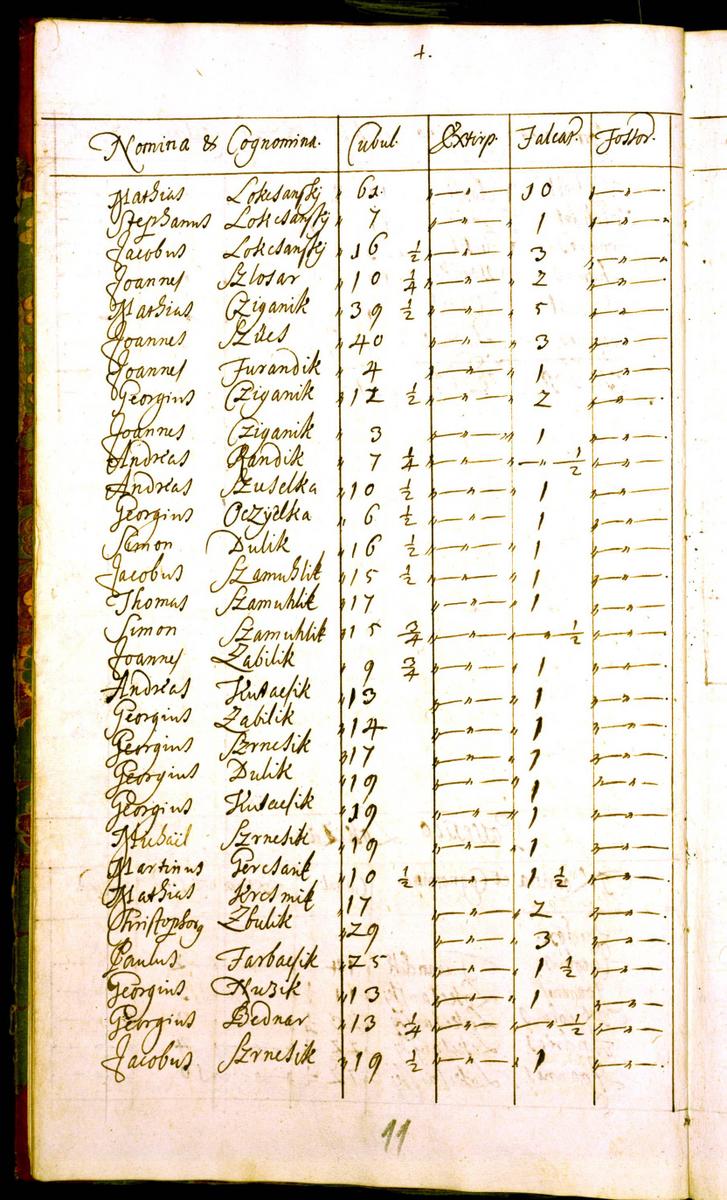 4.
Nomina & Cognomina. Cubul. Extirp. Falcat. Fossor.
Mathias Lokcsanskj " 61. "—"— 10 "—"—
Stephanus Lokcsanskj " 7 "—"— " 1 "—"—"
Jacobus Lokcsanskj " 16 ½ "—"— " 3 "—"—"
Joannes Szlosar " 10 ¼ "—"— " 2 "—"—
Mathias Cziganik " 39 ½ "—"— " 5 "—"—
Joannes " 40 "—"— " 3 "—"—
Joannes Jurandik " 4 "—"— " 1 "—"—
Georgius Cziganik " 12 ½ "—"— " 2 "—"—
Joannes Cziganik " 3 "—"—" 1 "—"—
Andreas Randik " 7 ¼ "—"— "—"— ½ "—"—
Andreas Szuselka " 10 ½ "—"— " 1 "—"—
Georgius Oczyelka " 6 ½ "—"— " 1 "—"—
Simon Dulik " 16 ½ "—"— " 1 "—"—
Jacobus Szamuhlik " 15 ½ "—"— " 1 "—"—
Thomas Szamuhlik " 17 "—"— " 1 "—"—
Simon Szamuhlik " 15 ¾ "—"— "—"— ½ "—"—
Joannes Zabilik " 9 ¾ "—"— " 1 "—"—
Andreas " 13 "—"— " 1 "—"—
Georgius Zabilik " 14 "—"— " 1 "—"—
Georgius Szrnesik " 17 "—"— " 1 "—"—
Georgius Dulik " 19 "—"— " 1 "—"—
Georgius " 19 "—"— " 1 "—"—
Michaël Szrnesik " 19 "—"— " 1 "—"—
Martinus " 10 ½ "—"— " 1 ½ "—"—
Mathias " 17 "—"— " 2 "—"—
Christophorg Zbulik " 29 "—"— " 3 "—"—
Paulus Farbacsik " 25 "—"— " 1 ½ "—"—
Georgius Muzik " 13 "—"— " 1 "—"—
Georgius Bednar " 13 ¼ "—"— "—"— ½ "—"—
Jacobus Szrnesik " 19 ½ "—"— " 1 "—"—
11